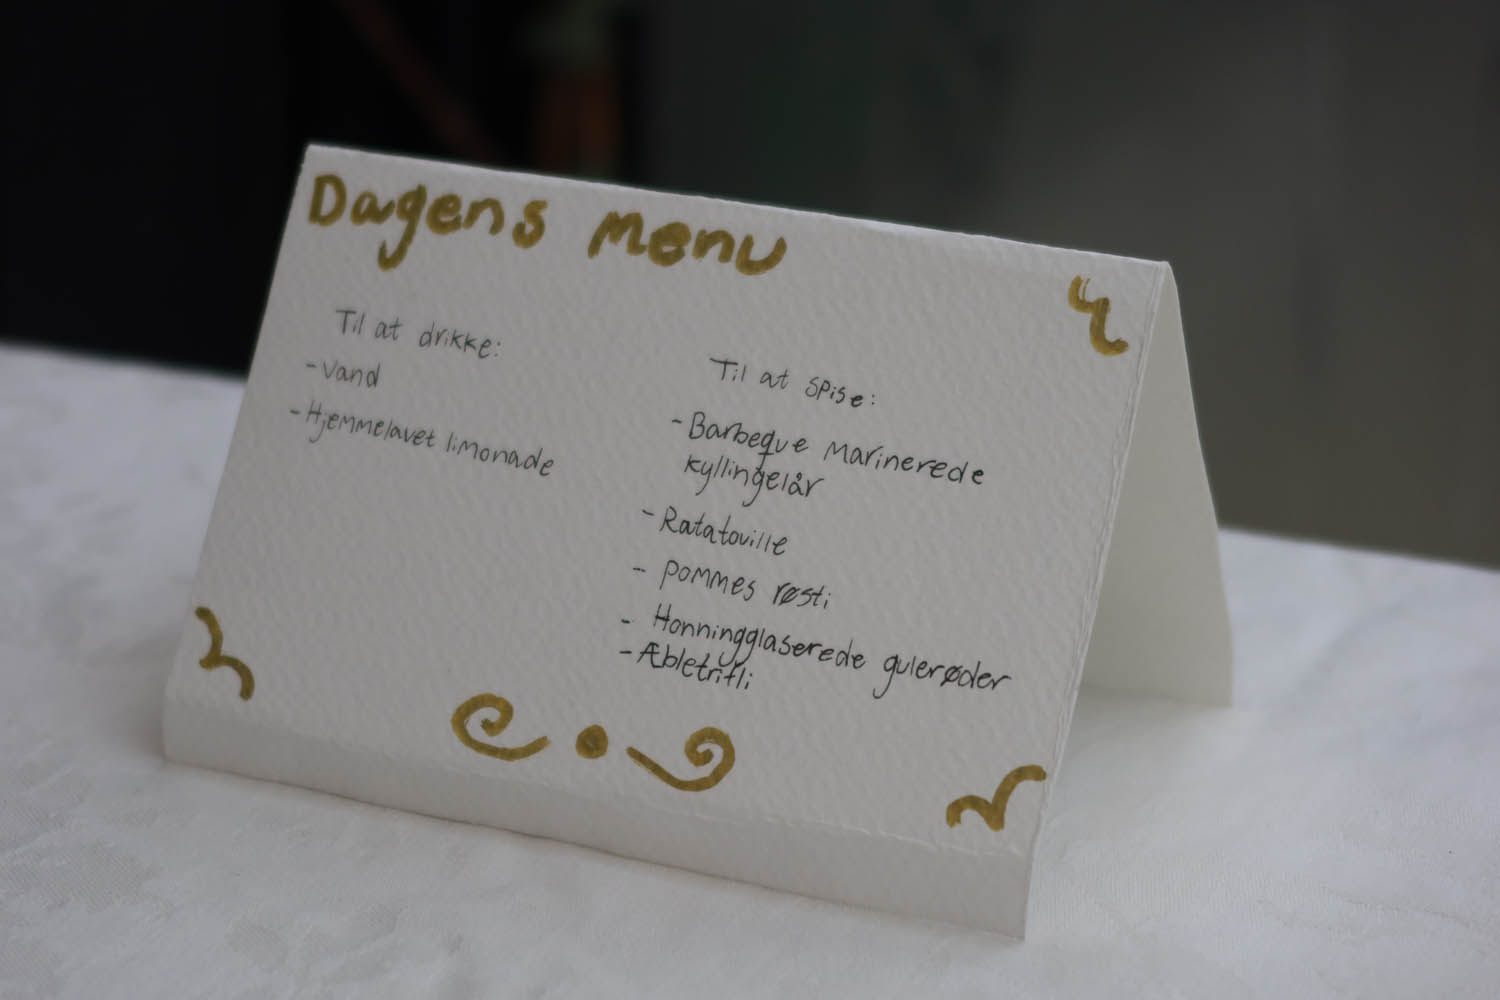 Dagens menu
Til at drikke:
- Vand
- Hjemmelavet limonade
Til at spise:
- Barbeque marinerede
kyllingelår
- Ratatouille
- pommes røsti
- Honningglaserede gulerøder
- Æbletrifli